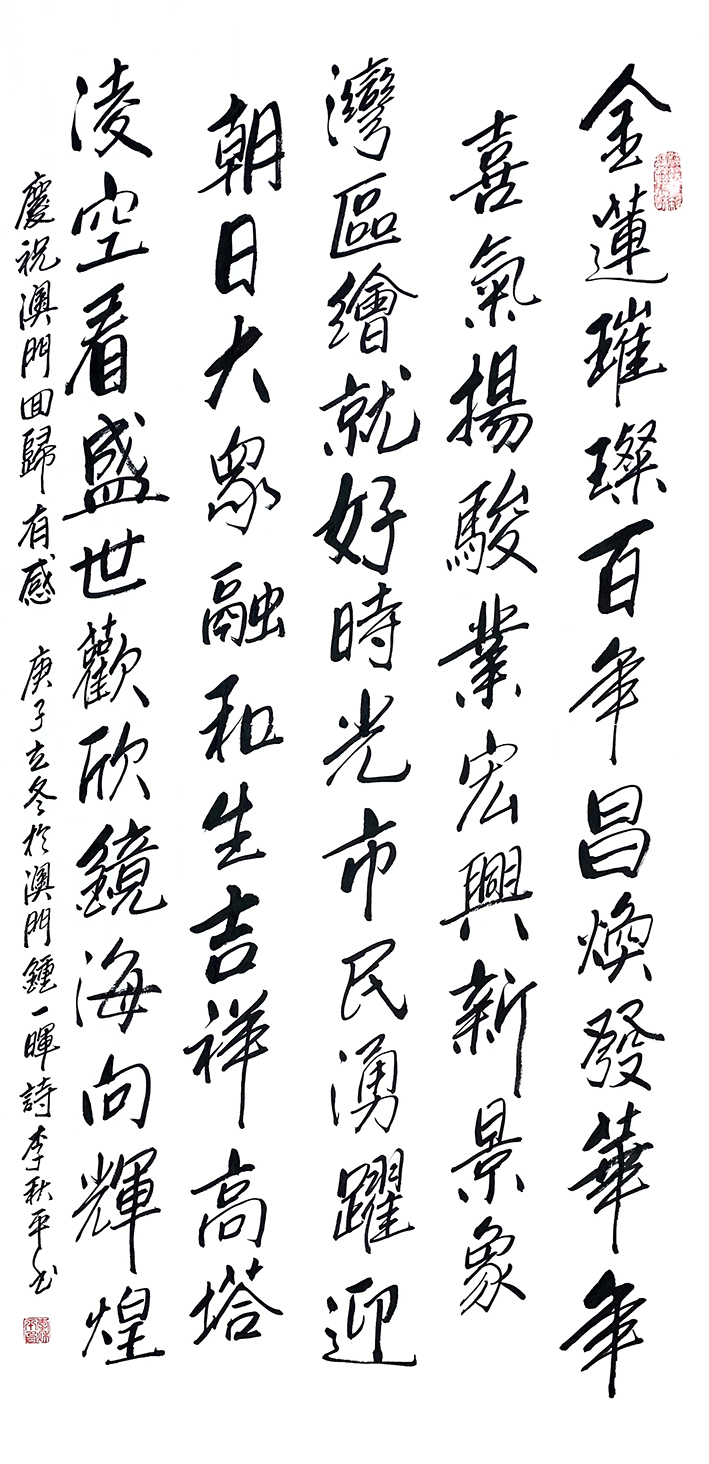 金蓮璀璨百年昌煥發華年
喜氣揚駿業宏興新景象
灣區繪就好時光市民湧躍迎
朝日大眾融和生吉祥高塔
凌空看盛世歡欣鏡海向輝煌
慶祝澳門回歸有感 庚子立冬於澳門鍾一暉詩李秋平书